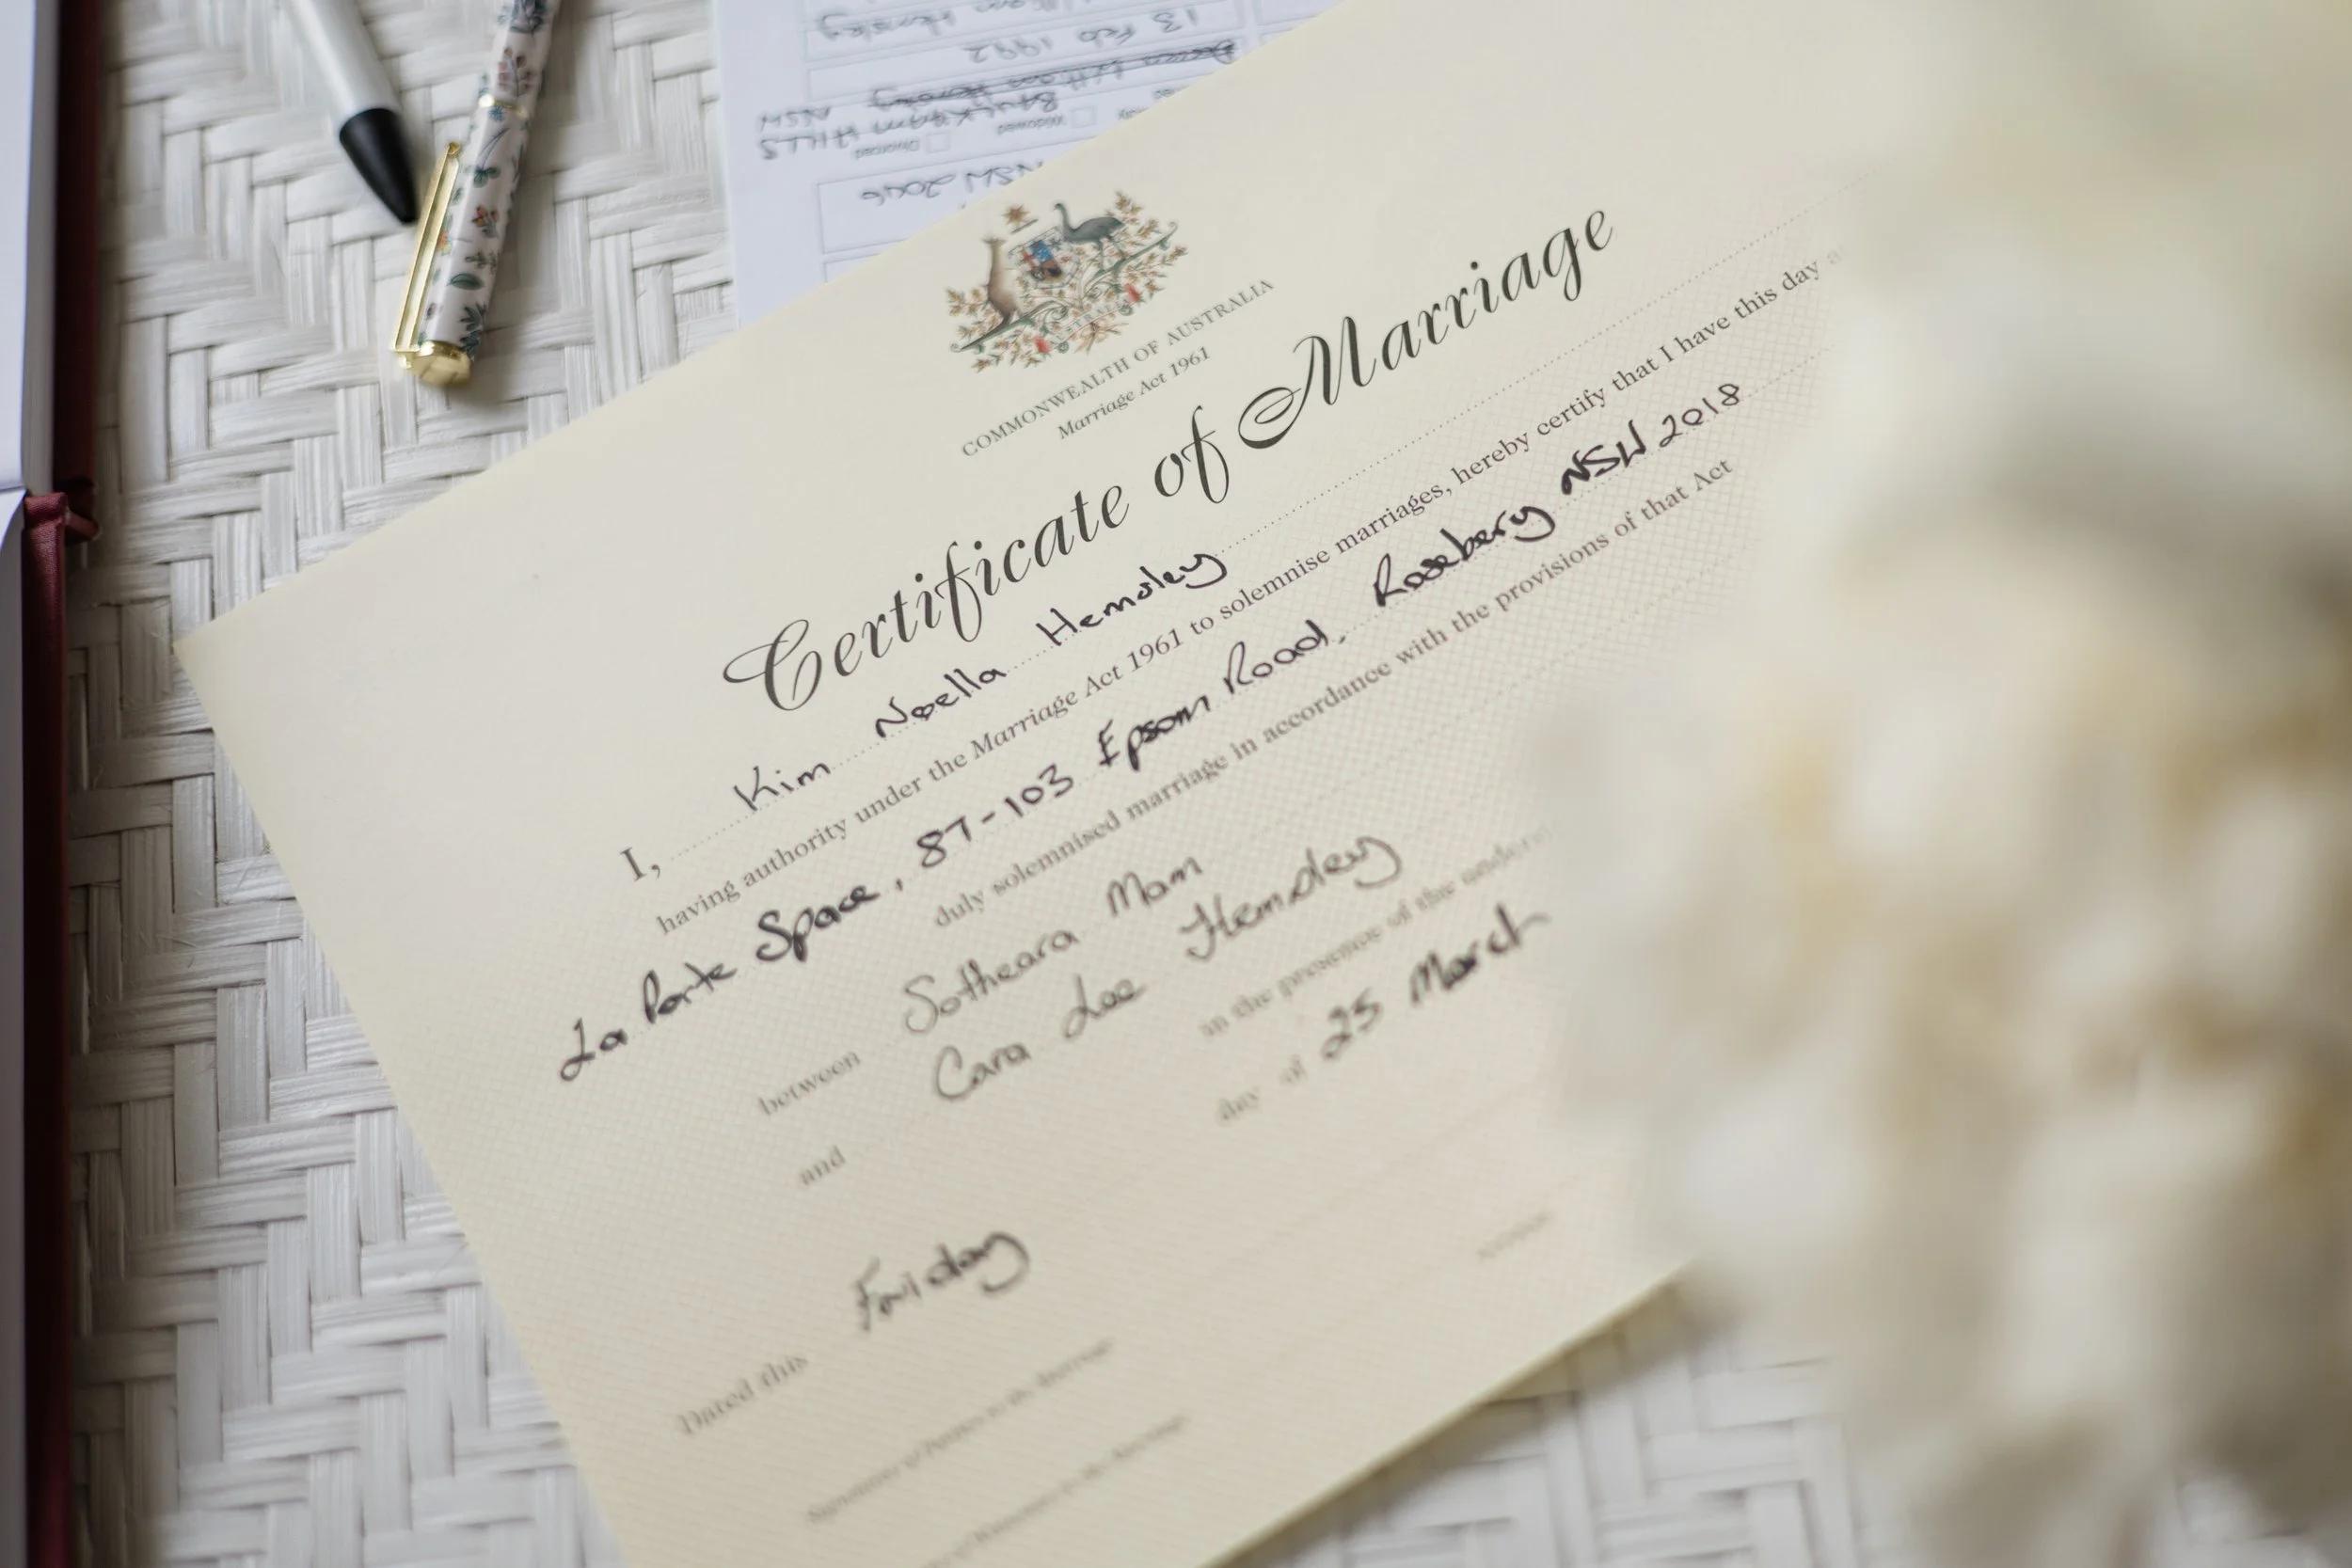 COMMONWEALTH OF AUSTRALIA
Marriage Act 1961
Certificate of Marriage
I, Kim Noella Hemsley
having authority under the Marriage Act 1961 to solemnise marriages, hereby certify that I have this day
La Porte Space, 87-103 Epsom Road, Rosebery NSW 2018
duly solemnised marriage in accordance with the provisions of that Act
between Sotheara Mam
and Cara Lee Hemsley
in the presence of the
Dated this Friday day of 25 March
Signatures of Parties to the Marriage
of Witnesses to the Marriage
13 Feb 1992
BAULKHAM HILLS NSW
Widowed
Divorced
NSW 2046